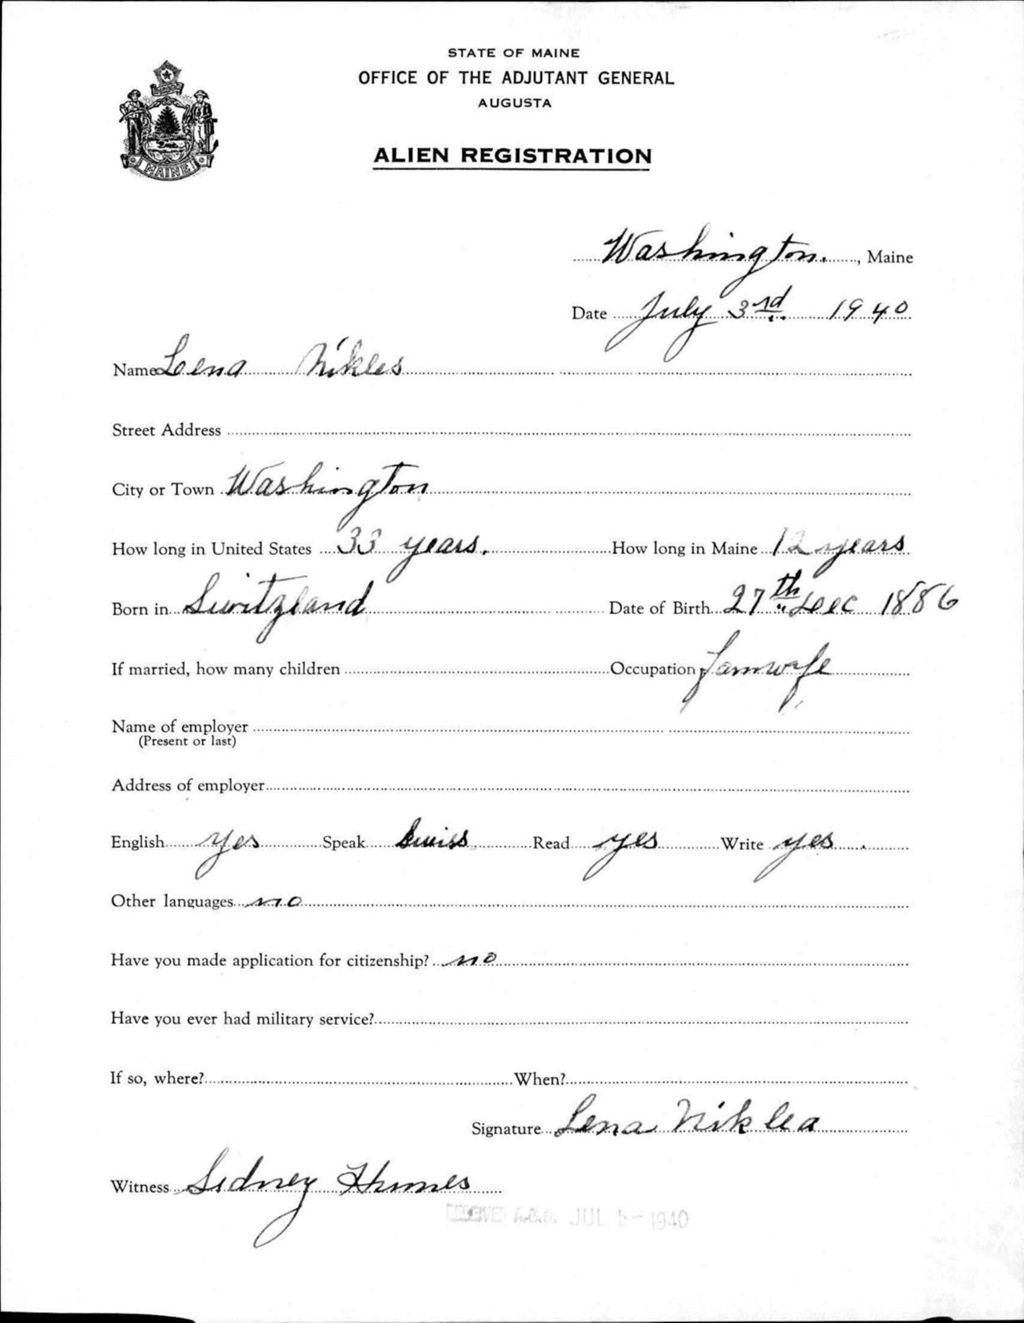 STATE OF MAINE
OFFICE OF THE ADJUTANT GENERAL
AUGUSTA
ALIEN REGISTRATION
MAINE
Washington, Maine
Date July 3rd. 1940
Name Lena Nikles
Street Address
City or Town Washington
How long in United States 33 years. How long in Maine 12 years
Born in Switzland Date of Birth 27th Dec 1886
If married, how many children Occupation famwife
Name of employer
(Present or last)
Address of employer
English yes Speak Swiss Read yes Write yes
Other languages no
Have you made application for citizenship? no
Have you ever had military service?
If so, where? When?
Signature Lena Niklea
Witness Sidney Humes
RECEIVED A.G.O. JUL 5 - 1940